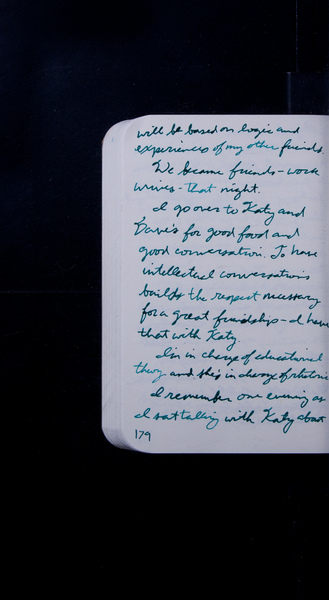 will be based on logic and
experiences of my other friends.
We became friends - work
wives - that night.
I go over to Katy and
Dave's for good food and
good conversation. To have
intellectual conversations
builds the respect necessary
for a great friendship - I have
that with Katy.
I'm in charge of educational
theory and she's in charge of rhetoric
I remember one evening as
I sat talking with Katy about
179